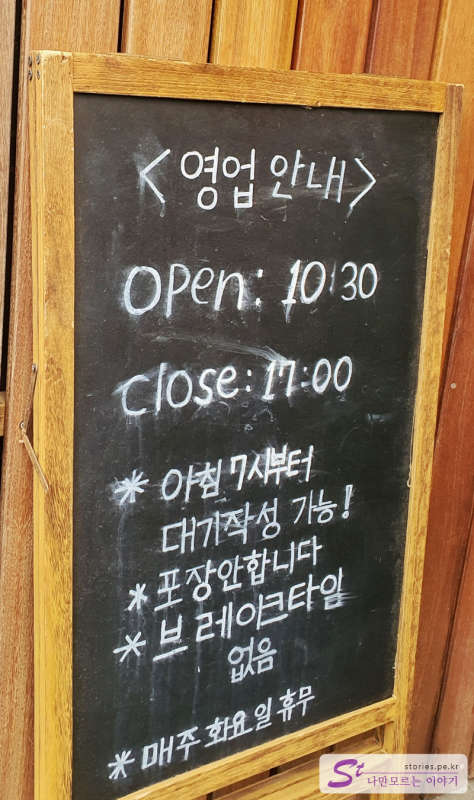 <영업 안내>
open: 10:30
close: 17:00
* 아침 7시부터
대기작성 가능!
* 포장안합니다
* 브레이크타임
없음
* 매주 화요일 휴무
St stories.pe.kr
나만모르는 이야기